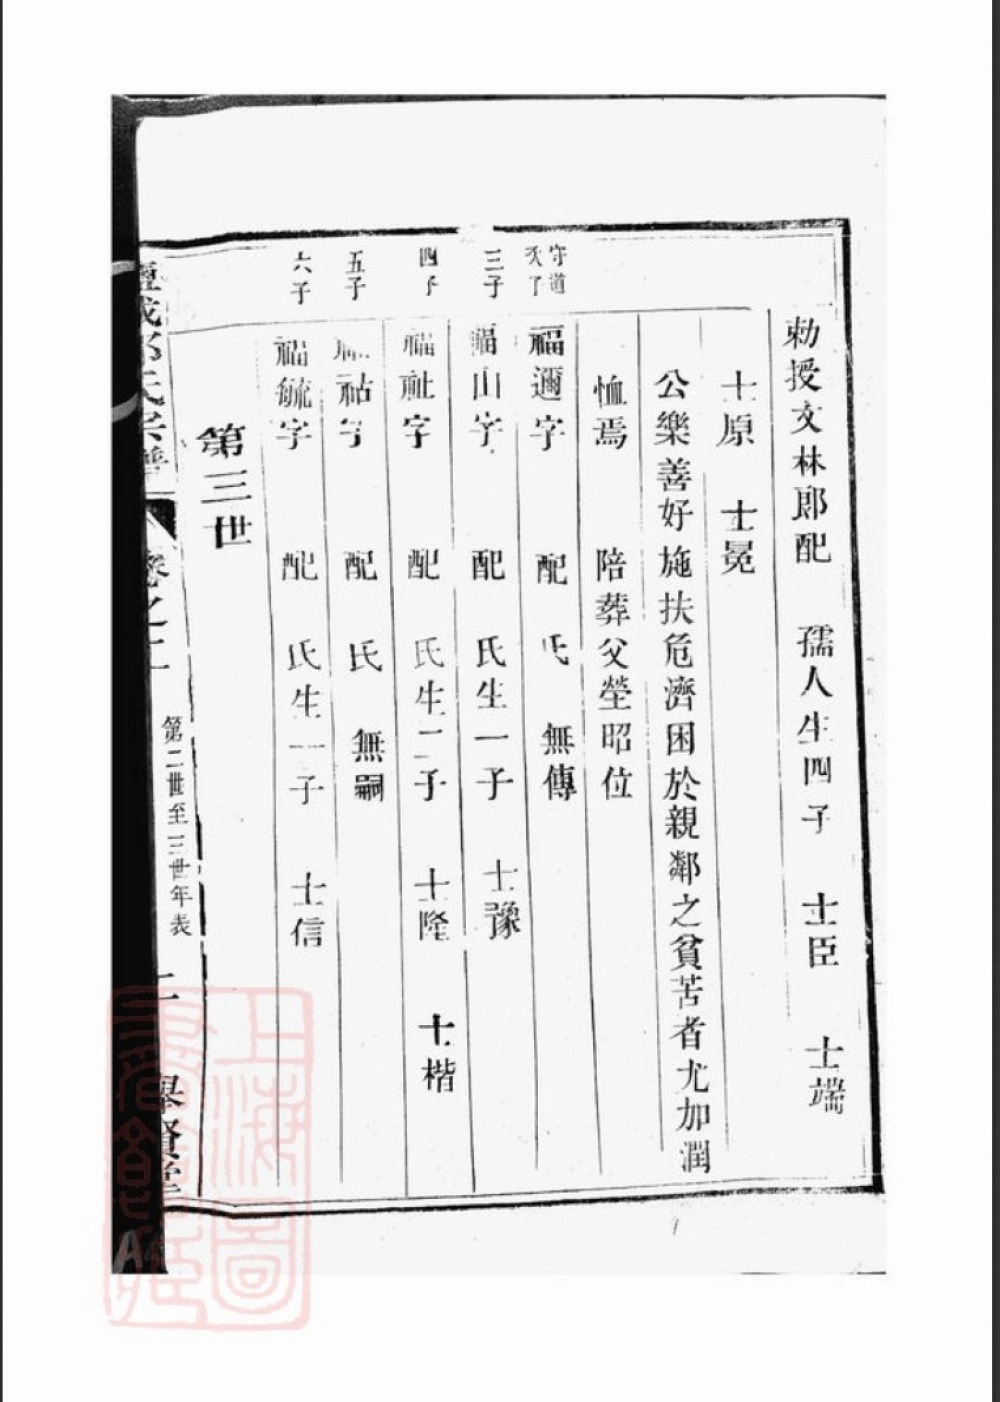 勅授文林郎配 孺人生四子 士臣 士端
士原 士冕
公樂善好施扶危濟困於親鄰之貧苦者尤加潤
恤焉 陪葬父塋昭位
守道
次子
福邇字 配 氏 無傳
三子
福山字 配 氏生一子 士豫
四子
福祉字 配 氏生二子 士隆 士楷
五子
祜字 配 氏 無嗣
六子
福毓字 配 氏生一子 士信
第三世
氏宗譜
卷之二
第二世至三世年表
賢堂
上海圖